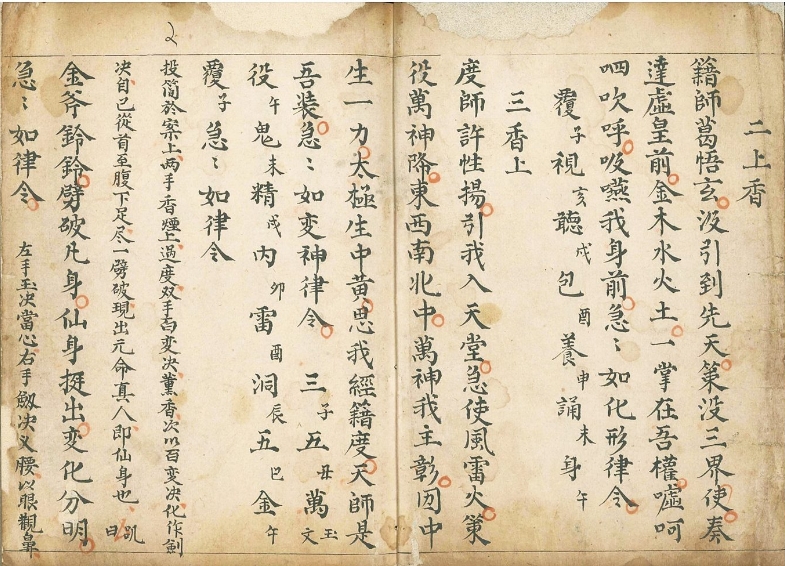 二上香
籍師葛悟玄汲引到先天策没三界使奏
達虛皇前金木水火土一掌在吾權噓呵
呬吹呼吸嚥我身前急〻如化形律令
覆子視亥聽戌包酉養申誦未身午
三香上
度師許性揚引我入天堂急使風雷火策
役萬神降東西南北中萬神我主彰囙中
生一力太極生中黄思我經籍度天師是
吾裝急〻如变神律令 三子五丑萬玉文
役午鬼未精戌内卯雷酉洞辰五巳金午
覆子急〻如律令
投简於案上两手香煙上過度双手白变决薰香次以百变决化作劍
决自己從首至腹下足尽一劈破現出元命真人即仙身也 凯曰
金斧鈴鈴劈破凡身仙身挺出变化分明
急〻如律令 左手玉决當心右手劔决义腰以眼觀鼻
2